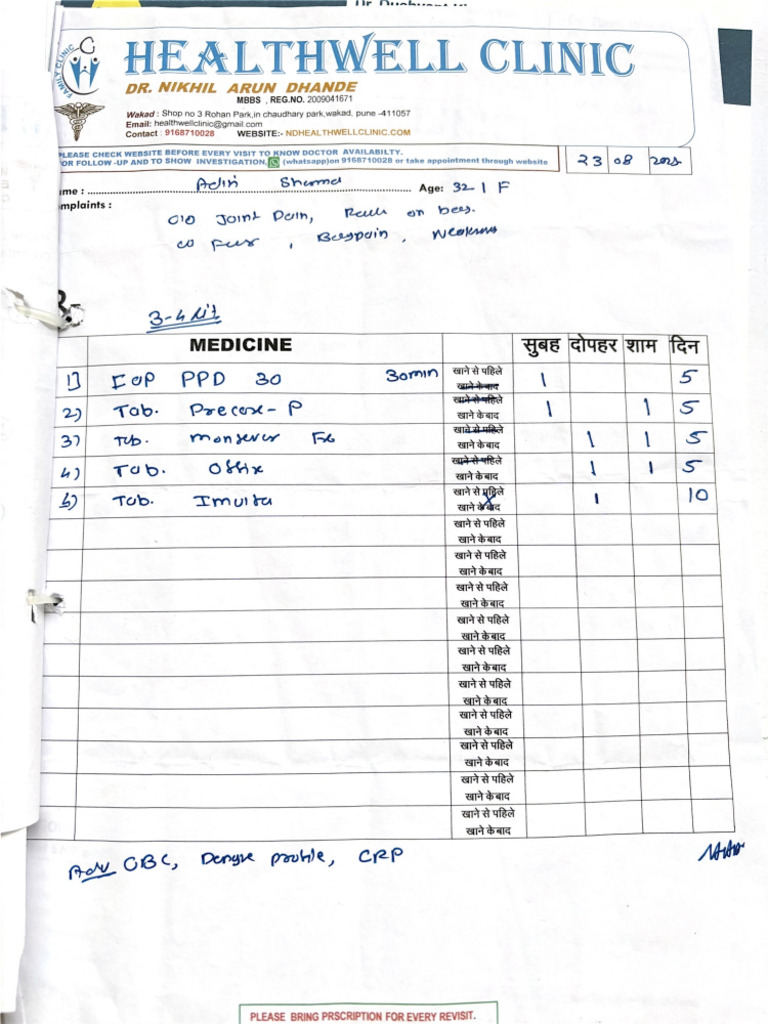 HEALTHWELL CLINIC
FAMILY CLINIC
DR. NIKHIL ARUN DHANDE
MBBS , REG.NO. 2009041671
Wakad : Shop no 3 Rohan Park,in chaudhary park,wakad, pune -411057
Email: healthwellclinic@gmail.com
Contact : 9168710028 WEBSITE:- NDHEALTHWELLCLINIC.COM
PLEASE CHECK WEBSITE BEFORE EVERY VISIT TO KNOW DOCTOR AVAILABILTY.
FOR FOLLOW -UP AND TO SHOW INVESTIGATION, (whatsapp)on 9168710028 or take appointment through website
23 08 2025
ame : Sharma Age: 32 / F
mplaints :
C/O Joint Pain, on
C/O Fever , ,
3-4 lit
MEDICINE सुबह दोपहर शाम दिन
1) CAP PPD 30 30min खाने से पहिले खाने के बाद 1 5
2) Tab. - P खाने से पहिले खाने के बाद 1 1 5
3) Tab. खाने से पहिले खाने के बाद 1 1 5
4) Tab. खाने से पहिले खाने के बाद 1 1 5
5) Tab. खाने से पहिले खाने के बाद 1 10
खाने से पहिले
खाने के बाद
खाने से पहिले
खाने के बाद
खाने से पहिले
खाने के बाद
खाने से पहिले
खाने के बाद
खाने से पहिले
खाने के बाद
खाने से पहिले
खाने के बाद
खाने से पहिले
खाने के बाद
खाने से पहिले
खाने के बाद
खाने से पहिले
खाने के बाद
खाने से पहिले
खाने के बाद
Adv CBC, Dengue profile, CRP
PLEASE BRING PRSCRIPTION FOR EVERY REVISIT.